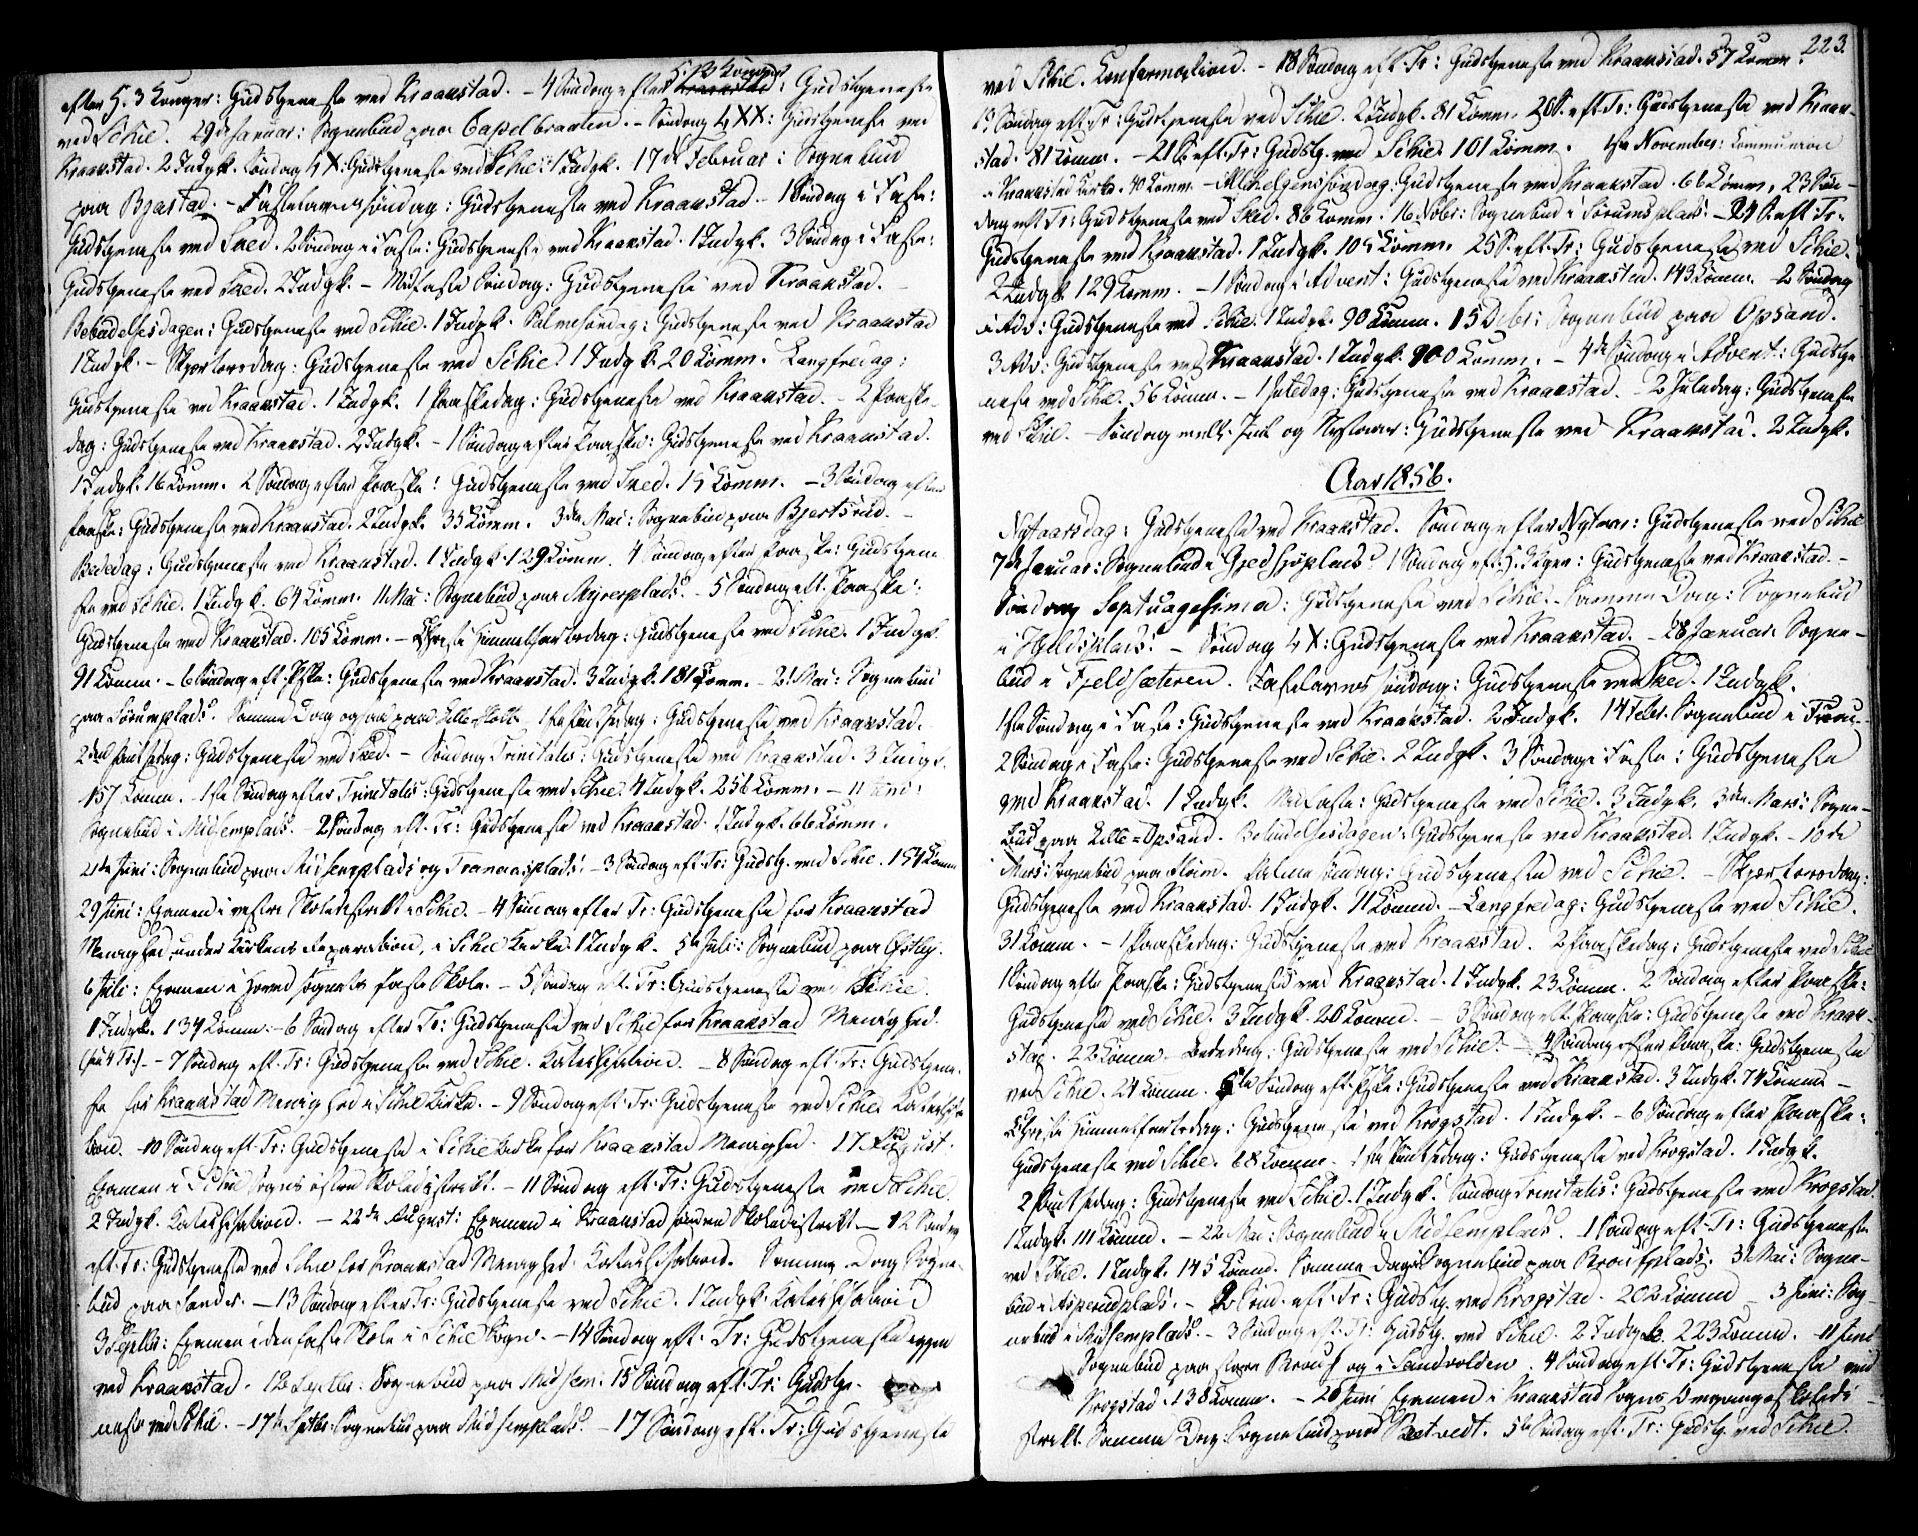 efter H. 3 Konger: Gudstjeneste ved Kraakstad. - 4 Søndag efter H. 3 Konger: Gudstjeneste
ved Schie. 29de Januar: Sognebud paa Capelbraaten. - Søndag LXX: Gudstjeneste ved
Kraakstad. 2 Indgk. Søndag LX: Gudstjeneste ved Schie: 1 Indgk. 17de Februar: Sognebud
paa Bjastad. - Fastelavnssøndag: Gudstjeneste ved Kraakstad. - 1 Søndag i Faste:
Gudstjeneste ved Skee. 2 Søndag i Faste: Gudstjeneste ved Kraakstad. 1 Indgk. 3 Søndag i Faste:
Gudstjeneste ved Skee. 2 Indgk. - Midfaste Søndag: Gudstjeneste ved Kraakstad. -
Bebudelsesdagen: Gudstjeneste ved Schie. 1 Indgk. Palmesøndag: Gudstjeneste ved Kraakstad
1 Indgk. - Skjærtorsdag: Gudstjeneste ved Schie. 1 Indgk. 20 Komm. Langfredag:
Gudstjeneste ved Kraakstad. 1 Indgk. 1 Paaskedag: Gudstjeneste ved Kraakstad. - 2 Paaske-
dag: Gudstjeneste ved Kraakstad. 2 Indgk. - 1 Søndag efter Paaske: Gudstjeneste ved Kraakstad.
1 Indgk. 16 Komm. 2 Søndag efter Paaske: Gudstjeneste ved Skee. 15 Komm. - 3 Søndag efter
Paaske: Gudstjeneste ved Kraakstad. 2 Indgk. 35 Komm. 3die Mai: Sognebud paa Bjertsrud. -
Bededag: Gudstjeneste ved Kraakstad. 1 Indgk. 129 Komm. 4 Søndag efter Paaske: Gudstjene
ste ved Schie. 1 Indgk. 64 Komm. 11 Mai: Sognebud paa Myrerplads. - 5 Søndag eft. Paaske:
Gudstjeneste ved Kraakstad. 105 Komm. - Christi Himmelfartsdag: Gudstjeneste ved Schie. 1 Indgk.
91 Komm. - 6 Søndag eft. Pske: Gudstjeneste ved Kraakstad. 3 Indgk. 181 Komm. - 21 Mai: Sognebud
paa Sørumplads. Samme Dag ogsaa paa. 1ste Pintsedag: Gudstjeneste ved Kraakstad.
2den Pintsedag: Gudstjeneste ved Skee. - Søndag Trinitatis: Gudstjeneste ved Kraakstad. 3 Indgk.
157 Komm. - 1ste Søndag efter Trinitatis: Gudstjeneste ved Schie. 4 Indgk. 256 Komm. - 11 Juni:
Sognebud i Midsemplads. - 2 Søndag eft. Tr: Gudstjeneste ved Kraakstad. 1 Indgk. 66 Komm.
21de Juni: Sognebud paa Midsemplads og Tranaasplads. - 3 Søndag eft. Tr: Gudstj. ved Schie. 154 Komm
29 Juni: Examen i vestre Skoledistrikt i Schie. - 4 Søndag efter Tr: Gudstjeneste for Kraakstad
Menighed under Kirkens Reparation, i Schie Kirke. 1 Indgk. 5te Juli: Sognebud paa Østby.
6 Juli: Examen i Hovedsognets faste Skole. - 5 Søndag eft. Tr: Gudstjeneste ved Schie.
1 Indgk. 134 Komm. - 6 Søndag efter Tr: Gudstjeneste ved Schie for Kraakstad Menighed.
- 7 Søndag eft. Tr: Gudstjeneste ved Schie. Katechisation. - 8 Søndag eft. Tr: Gudstjene-
ste for Kraakstad Menighed i Schie Kirke. - 9 Søndag eft. Tr: Gudstjeneste ved Schie. Katechisa
tion. - 10 Søndag eft. Tr: Gudstjeneste i Schie Kirke for Kraakstad Menighed. 17 August.
Examen i Schie Sogns østre Skoledistrikt. - 11 Søndag eft. Tr: Gudstjeneste ved Schie.
2 Indgk. Katechisation. - 22de August: Examen i Kraakstad søndre Skoledistrikt - 12 Søndag
eft. Tr: Gudstjeneste ved Schie for Kraakstad Menighed. Katechisation. Samme Dag Sogne-
bud paa Sander. - 13 Søndag efter Tr: Gudstjeneste ved Schie. 1 Indgk. Katechisation
3 Septbr: Examen i den faste Skole i Schie Sogn. - 14 Søndag eft. Tr: Gudstjeneste igjen
ved Kraakstad. 12 Septbr: Sognebud paa Midsem: 15 Søndag eft. Tr: Gudstje-
neste ved Schie. - 17de Septbr: Sognebud paa Midsemplads. - 17 Søndag eft. Tr: Gudstjeneste
223.
ved Schie. Konfirmation. - 18 Søndag eft. Tr: Gudstjeneste ved Kraakstad. 57 Komm.
19 Søndag eft. Tr: Gudstjeneste ved Schie. 2 Indgk. 81 Komm. 20 S. eft. Tr: Gudstjeneste ved Kraak-
stad. 81 Komm. - 21 S. eft. Tr: Gudstj. ved Schie. 101 Komm. 1ste November: Kommunion
i Kraakstad Kirke. 40 Komm. - Allehelgenssøndag: Gudstjeneste ved Kraakstad. 66 Komm. 23 Søn-
dag eft. Tr: Gudstjeneste ved Skee. 86 Komm. 16 Novbr: Sognebud i Sørumsplads. - 24 S. eft. Tr.
Gudstjeneste ved Kraakstad. 1 Indgk. 105 Komm. 25 S. eft. Tr: Gudstjeneste ved Schie.
2 Indgk. 129 Komm. - 1 Søndag i Advent: Gudstjeneste ved Kraakstad. 143 Komm. 2 Søndag
i Adv: Gudstjeneste ved Schie. 1 Indgk. 90 Komm. 15 Decbr: Sognebud paa Opsand.
3 Adv: Gudstjeneste ved Kraakstad. 1 Indgk. 100 Komm. - 4de Søndag i Advent: Gudstje
neste ved Schie. 56 Komm. - 1 Juledag: Gudstjeneste ved Kraakstad. - 2 Juledag: Gudstjeneste
ved Schie. - Søndag mell. Juul og Nytaar: Gudstjeneste ved Kraakstad. 2 Indgk.
Aar 1856.
Nytaarsdag: Gudstjeneste ved Kraakstad. Søndag efter Nytaar: Gudstjeneste ved Schie
7de Januar: Sognebud i Gjedsjøplads. 1 Søndag eft. H. 3 Kger: Gudstjeneste ved Kraakstad. -
Søndag Septuagesima: Gudstjeneste ved Schie. Samme Dag: Sognebud
i. - Søndag LX: Gudstjeneste ved Kraakstad. - 28 Januar: Sogne-
bud i Fjeldsæteren. Fastelavnssøndag: Gudstjeneste ved Skee. 1 Indgk.
1ste Søndag i Faste: Gudstjeneste ved Kraakstad. 2 Indgk. 14 Febr. Sognebud i
2 Søndag i Faste: Gudstjeneste ved Schie. 2 Indgk. 3 Søndag i Faste: Gudstjeneste
ved Kraakstad. 1 Indgk. Midfaste: Gudstjeneste ved Schie. 3 Indgk. 3die Mars: Sogne-
bud paa Lille-Opsand. Bebudelsesdagen: Gudstjeneste ved Kraakstad. 1 Indgk. - 10de
Mars: Sognebud paa. Palmesøndag: Gudstjeneste ved Schie. - Skjærtorsdag:
Gudstjeneste ved Kraakstad. 1 Indgk. 11 Komm. - Langfredag: Gudstjeneste ved Schie.
31 Komm. - 1 Paaskedag: Gudstjeneste ved Kraakstad. 2 Paaskedag: Gudstjeneste ved Schie
1 Søndag efter Paaske: Gudstjeneste ved Kraakstad. 1 Indgk. 23 Komm. 2 Søndag efter Paaske:
Gudstjeneste ved Schie. 3 Indgk. 26 Komm. - 3 Søndag eft. Paaske: Gudstjeneste ved Kraak-
stad. 22 Komm. Bededag: Gudstjeneste ved Schie. - 4 Søndag efter Paaske: Gudstjeneste
ved Schie. 24 Komm. 5te Søndag eft. Pske: Gudstjeneste ved Kraakstad. 3 Indgk. 74 Komm. -
Christi Himmelfartsdag: Gudstjeneste ved Krogstad. 1 Indgk. - 6 Søndag efter Paaske:
Gudstjeneste ved Schie. 68 Komm. 1ste Pintsedag: Gudstjeneste ved Krogstad. 1 Indgk.
2 Pintsedag: Gudstjeneste ved Schie. 1 Indgk. Søndag Trinitatis: Gudstjeneste ved Krogstad.
1 Indgk. 111 Komm. - 22 Mai: Sognebud i Midsemplads. 1 Søndag eft. Tr: Gudstjeneste
ved Schie. 1 Indgk. 145 Komm. Samme Dag Sognebud paa. 31 Mai: Sogne-
bud i Asperudplads. - 2 Sønd. eft. Tr: Gudstj. ved Krogstad. 202 Komm. - 3 Juni: Sog-
nebud i Midsemplads. - 3 Søndag eft. Tr: Gudstj. ved Schie. 2 Indgk. 223 Komm. 11 Juni
Sognebud paa store og i Sandvolden. 4 Søndag eft. Tr: Gudstjeneste ved
Krogstad. 138 Komm. - 20 Juni Examen i Kraakstad Sogns Omgangsskoledi-
strikt. Samme Dag Sognebud paa. 5te Søndag eft. Tr: Gudstj. ved Schie.